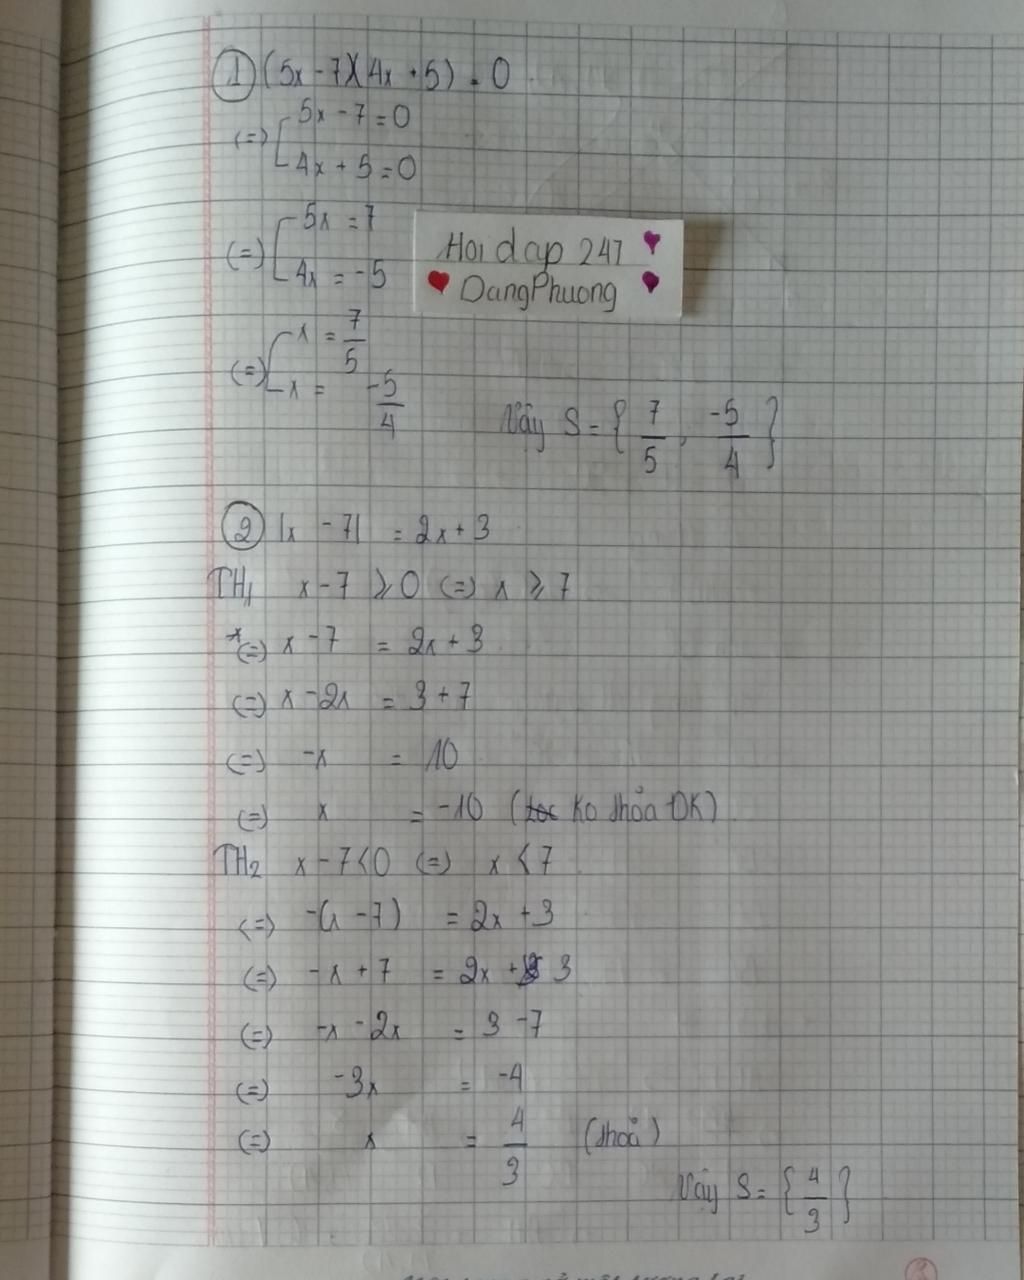 ① (5x - 7)(4x + 5) = 0
(=) [ 5x - 7 = 0
4x + 5 = 0
(=) [ 5x = 7
4x = -5
Hoi dap 247
DangPhuong
(=) [ x = 7/5
x = -5/4
Vậy S = { 7/5 , -5/4 }
② |x - 7| = 2x + 3
TH1 x - 7 ⩾ 0 (=) x ⩾ 7
*(=) x - 7 = 2x + 3
(=) x - 2x = 3 + 7
(=) -x = 10
(=) x = -10 (Ko thỏa ĐK)
TH2 x - 7 < 0 (=) x < 7
(=) -(x - 7) = 2x + 3
(=) -x + 7 = 2x + 3
(=) -x - 2x = 3 - 7
(=) -3x = -4
(=) x = 4/3 (thoả)
Vậy S = { 4/3 }